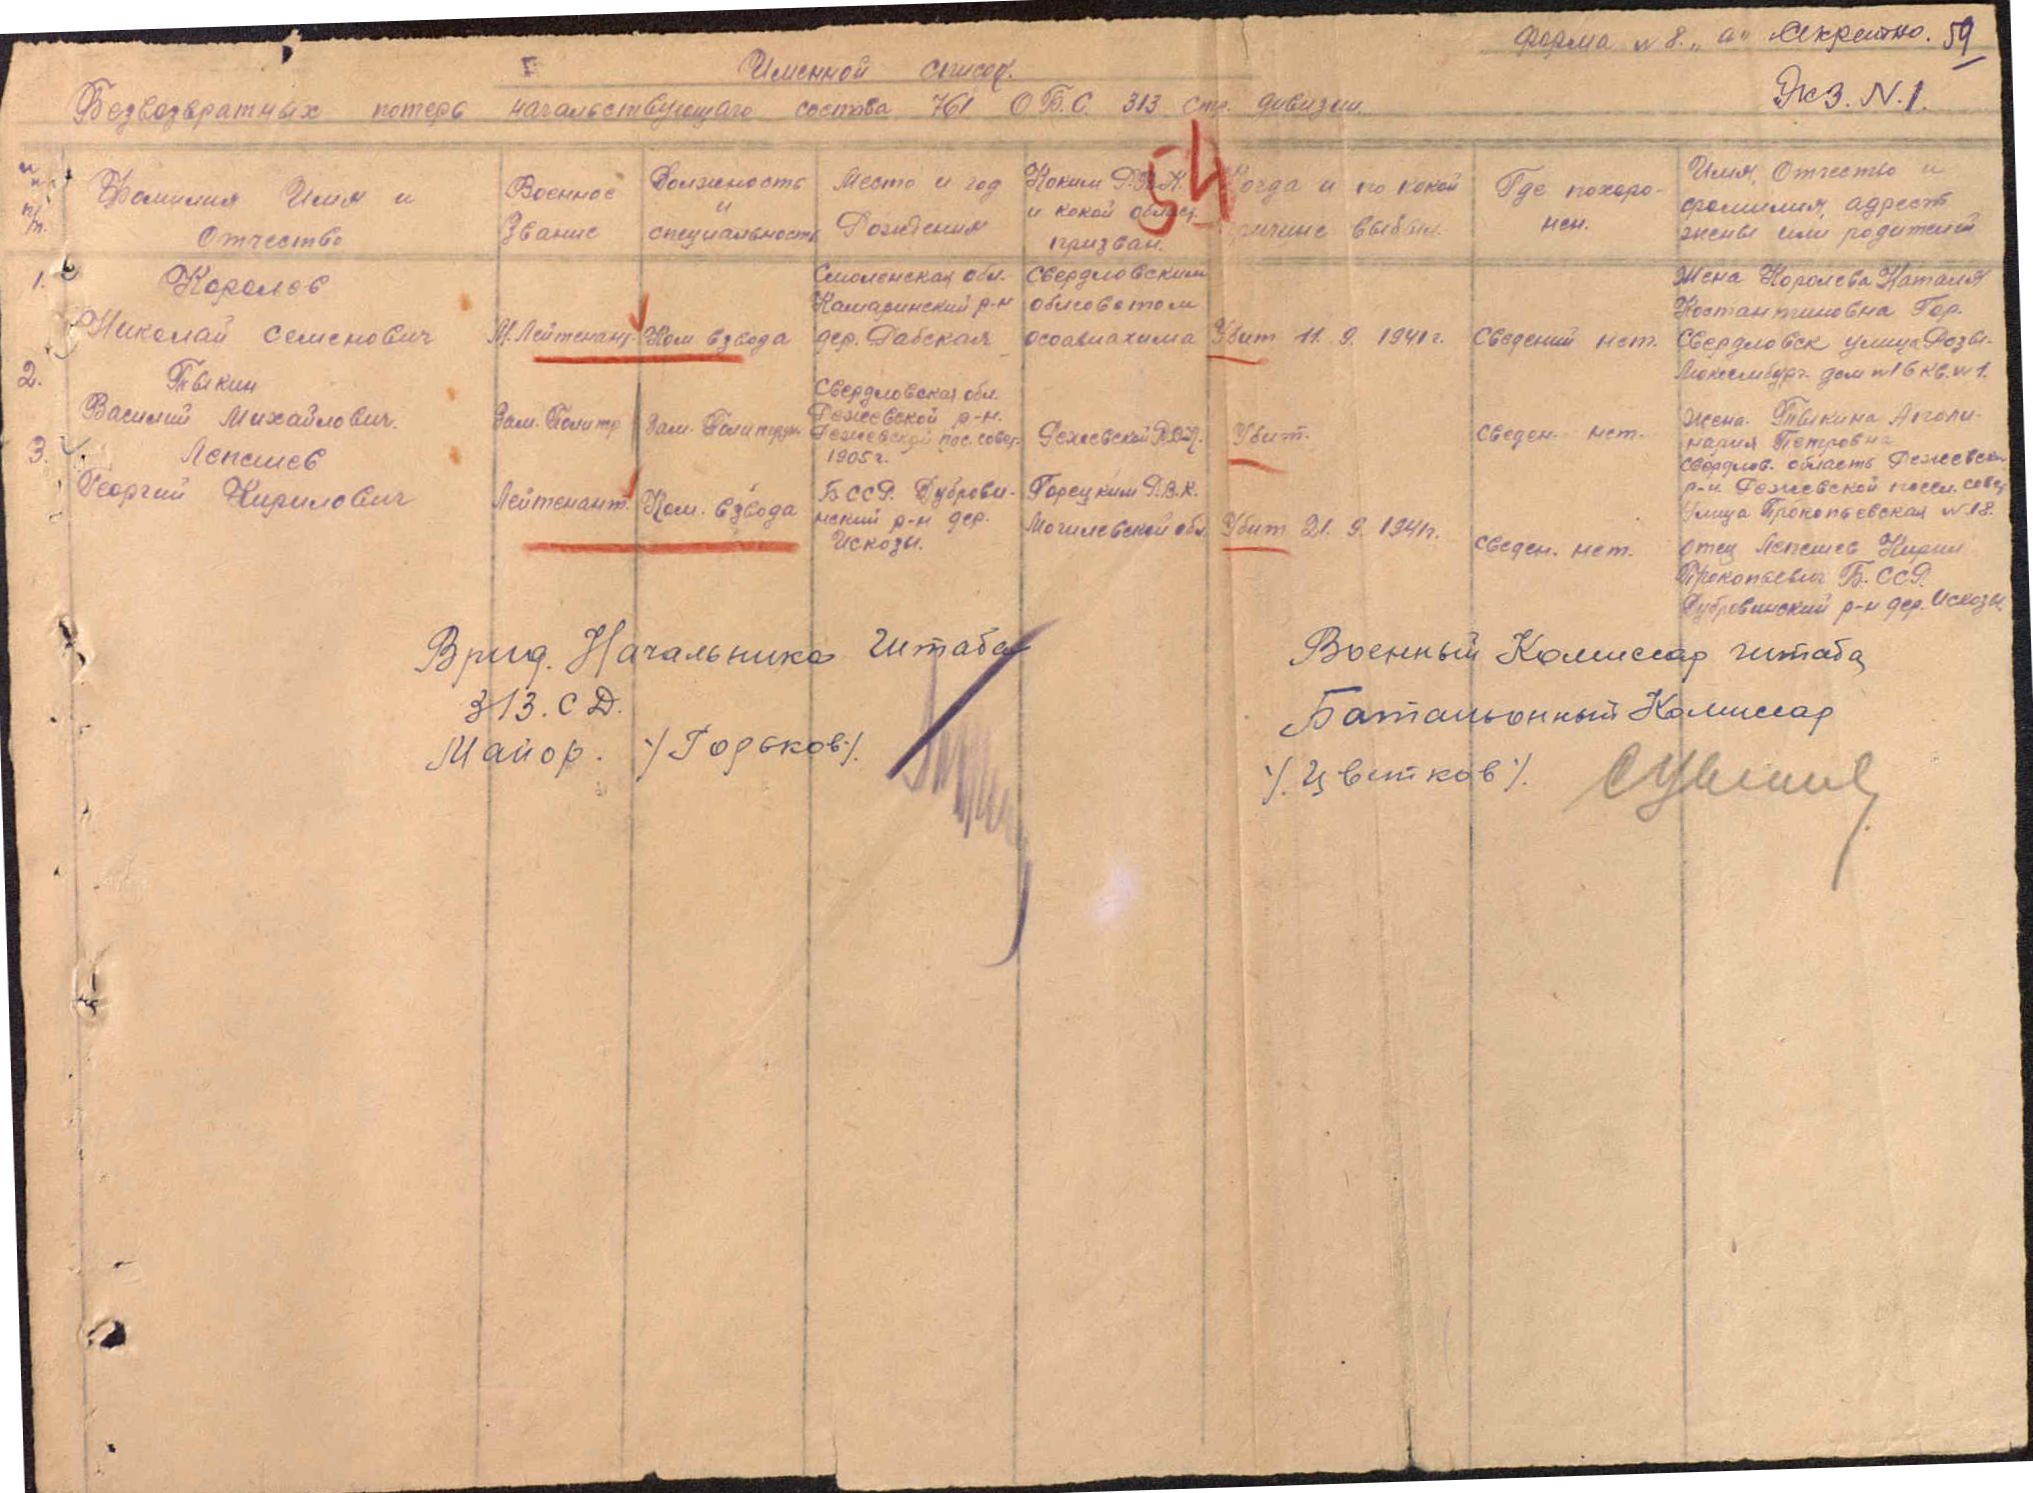 Форма № 8 „а" Секретно. 59
Экз. N. 1.
Именной список.
Безвозвратных потерь начальствующаго состава 761 О.Б.С. 313 стр. дивизии.
54
№ п/п.
Фамилия Имя и
Отчество
Военное
Звание
Должность
и
специальность
Место и год
Рождения
Каким Р.В.К.
и какой област.
призван.
Когда и по какой
причине выбыл.
Где похоро-
нен.
Имя, Отчество и
фамилия, адрест
жены или родителей
1. Королев
Николай Семенович
М. Лейтенант
Ком взвода
Смоленская обл.
р-н
дер.
Свердловским
облсоветом
осоавиахима
Убит 11. 9. 1941 г.
Сведений нет.
Жена Королева Наталия
Костантиновна Гор.
Свердловск улица Розы-
Люксембург. дом №16 кв. №1.
2. Тыкин
Василий Михайлович.
Зам. Политр
Зам. Политрук
Свердловская обл.
Режевской р-н.
Режевской пос. совет.
1905 г.
Режевской Р.В.К.
Убит.
Сведен. нет.
Жена. Тыкина Аполи-
нария Петровна
Свердлов. область Режевской
р-н. Режевской посел. совет
Улица Прокопьевская №18.
3. Лепешев
Георгий Кирилович
Лейтенант.
Ком. взвода
БССР. Дуброви-
нский р-н дер.
Искозы.
Горецким Р.В.К.
Могилевской обл.
Убит 21. 9. 1941 г.
Сведен. нет.
отец Лепешев Кирил
Прокопьевич Б.ССР.
Дубровинский р-н дер. Искозы
Врид. Начальника Штаба
313. С Д.
Майор. /Горьков/.
Военный Комиссар штаба
Батальонный Комиссар
/. Цветков /.